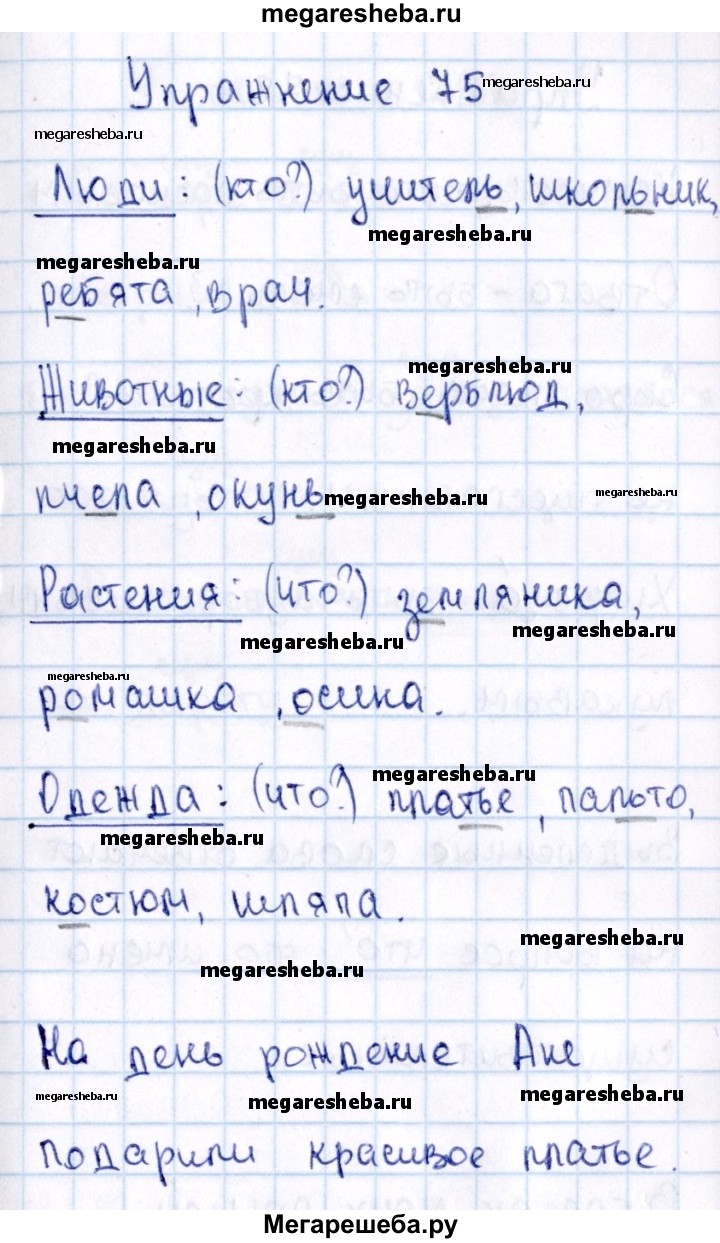 megaresheba.ru
Упражнение 75 megaresheba.ru
megaresheba.ru
Люди: (кто?) учитель, школьник,
megaresheba.ru
megaresheba.ru
ребята, врач.
megaresheba.ru
Животные: (кто?) верблюд,
megaresheba.ru
пчела, окунь megaresheba.ru megaresheba.ru
Растения: (что?) земляника,
megaresheba.ru
megaresheba.ru
megaresheba.ru
ромашка, осина.
megaresheba.ru
Одежда: (что?) платье, пальто,
megaresheba.ru
костюм, шляпа.
megaresheba.ru
megaresheba.ru
На день рождение Ане
megaresheba.ru megaresheba.ru megaresheba.ru
подарили красивое платье.
Мегарешеба.ру